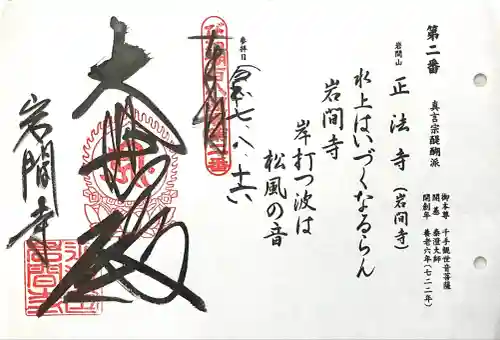 第二番
真言宗醍醐派
御本尊 千手観世音菩薩
開基 泰澄大師
開創年 養老六年(七二二年)
岩間山
正法寺(岩間寺)
水上はいづくなるらん
岩間寺
岸打つ波は
松風の音
参拝日
七、八、十六
奉拝
大悲殿
岩間寺